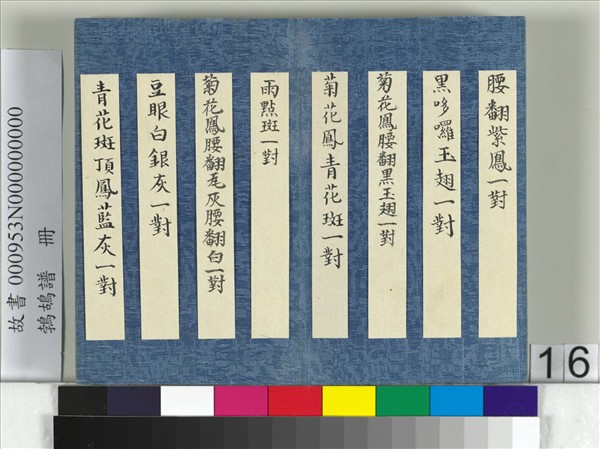 腰翻紫鳳一對
黑哆囉玉翅一對
菊花鳳腰翻黑玉翅一對
菊花鳳青花斑一對
雨點斑一對
菊花鳳腰翻毛灰腰翻白一對
豆眼白銀灰一對
青花斑頂鳳藍灰一對
故書 000953N000000000
鵓鴣譜 冊
16